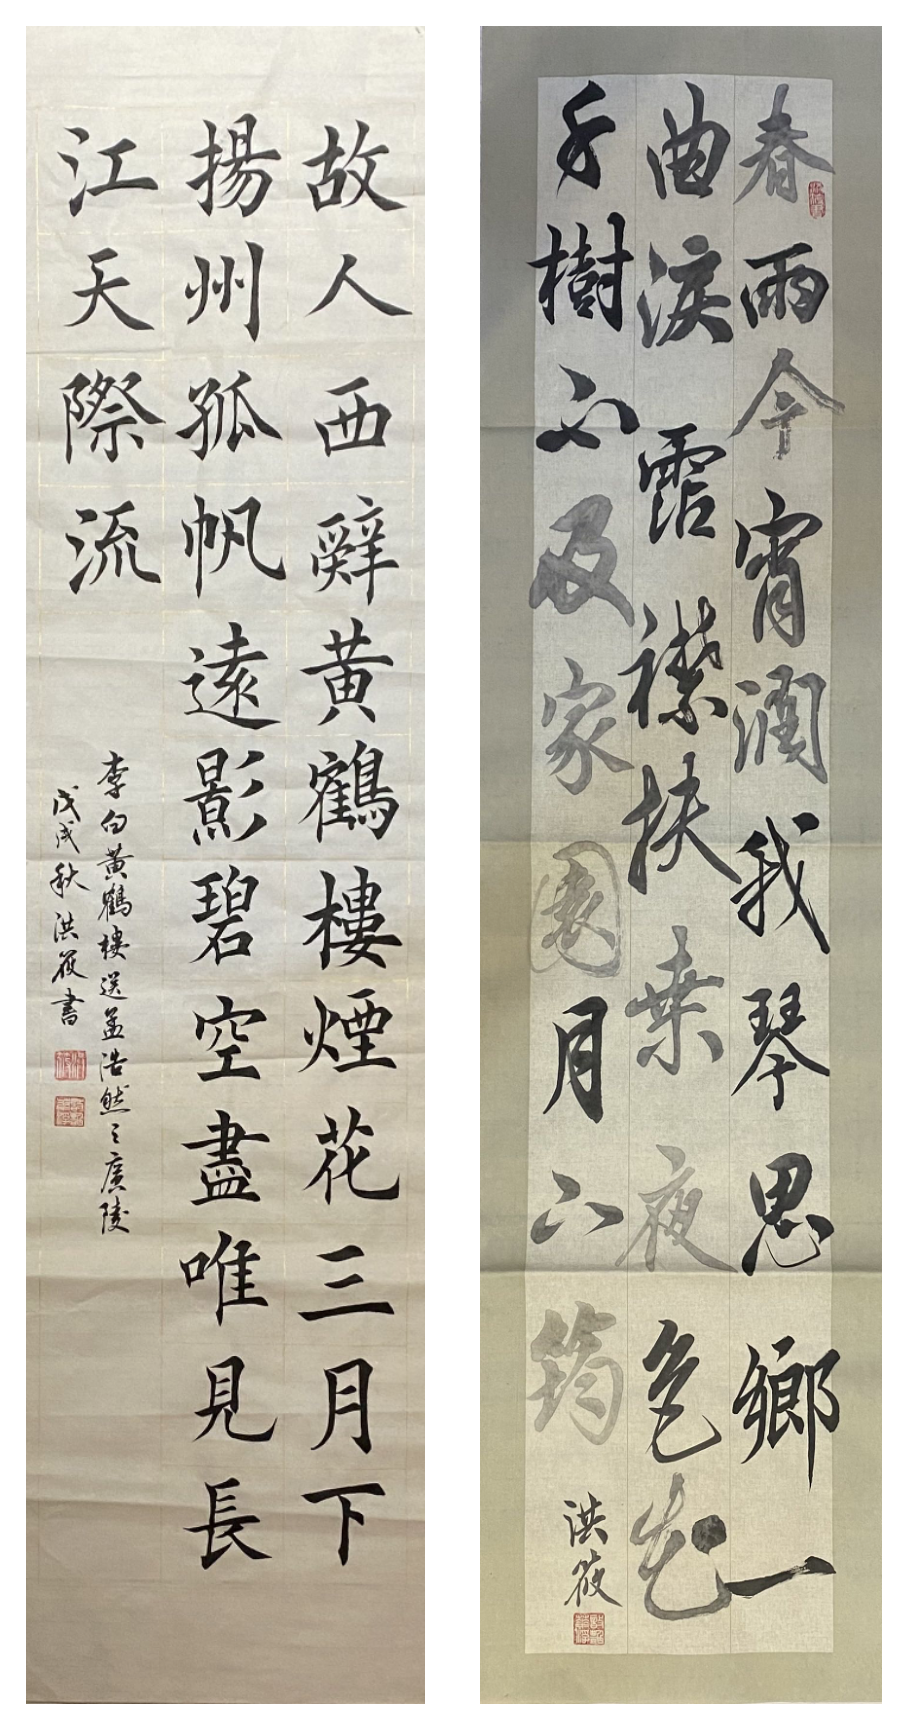 故人西辭黄鶴樓煙花三月下
揚州孤帆遠影碧空盡唯見長
江天際流
李白黄鶴樓送孟浩然之廣陵
戊戌秋洪筱書
春雨今宵潤我琴思鄉一
曲淚霑襟扶桑夜色花
千樹不及家園月下筠
洪筱